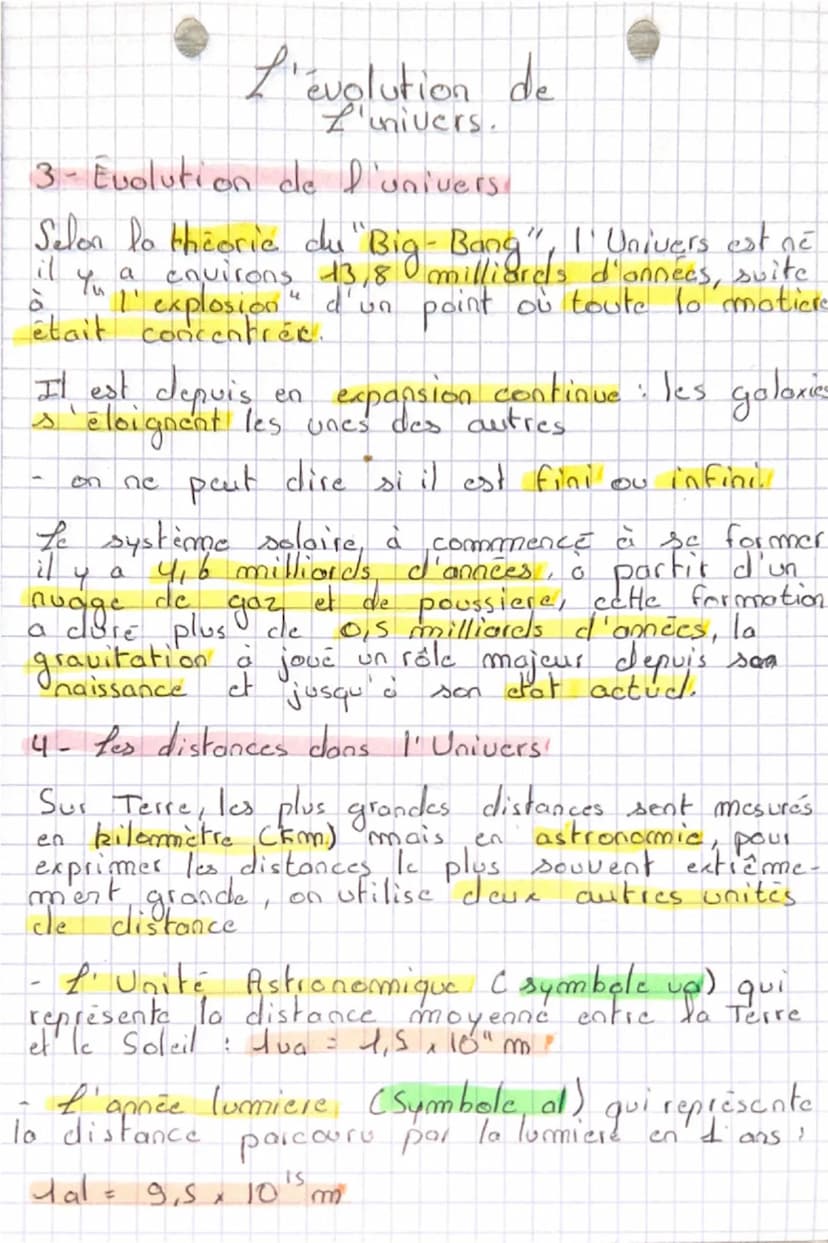 L'évolution de
l'univers.
3- Évolution de l'univers
Selon la théorie du "Big-Bang", l'Univers est né
il y a environs 13,8 milliards d'années, suite
à "l'explosion" d'un point où toute la matière
était concentrée.
Il est depuis en expansion continue : les galaxies
s'éloignent les unes des autres
- on ne peut dire si il est fini ou infini.
Le système solaire, à commencé à se former
il y a 4,6 milliards d'années, à partir d'un
nuage de gaz et de poussiere, cette formation
a duré plus de 0,5 milliards d'années, la
gravitation à joué un rôle majeur depuis son
naissance et jusqu'à son état actuel.
4- Les distances dans l'Univers
Sur Terre, les plus grandes distances sont mesurés
en kilommètre (km) mais en astronomie, pour
exprimer les distances le plus souvent extrême-
ment grande, on utilise deux autres unités
de distance
- L'Unité Astronomique (symbole ua) qui
représente la distance moyenne entre la Terre
et le Soleil : 1ua = 1,5 x 10¹¹ m
- L'année lumiere (Symbole al) qui représente
la distance parcouru par la lumiere en 1 ans :
1al = 9,5 x 10¹⁵ m